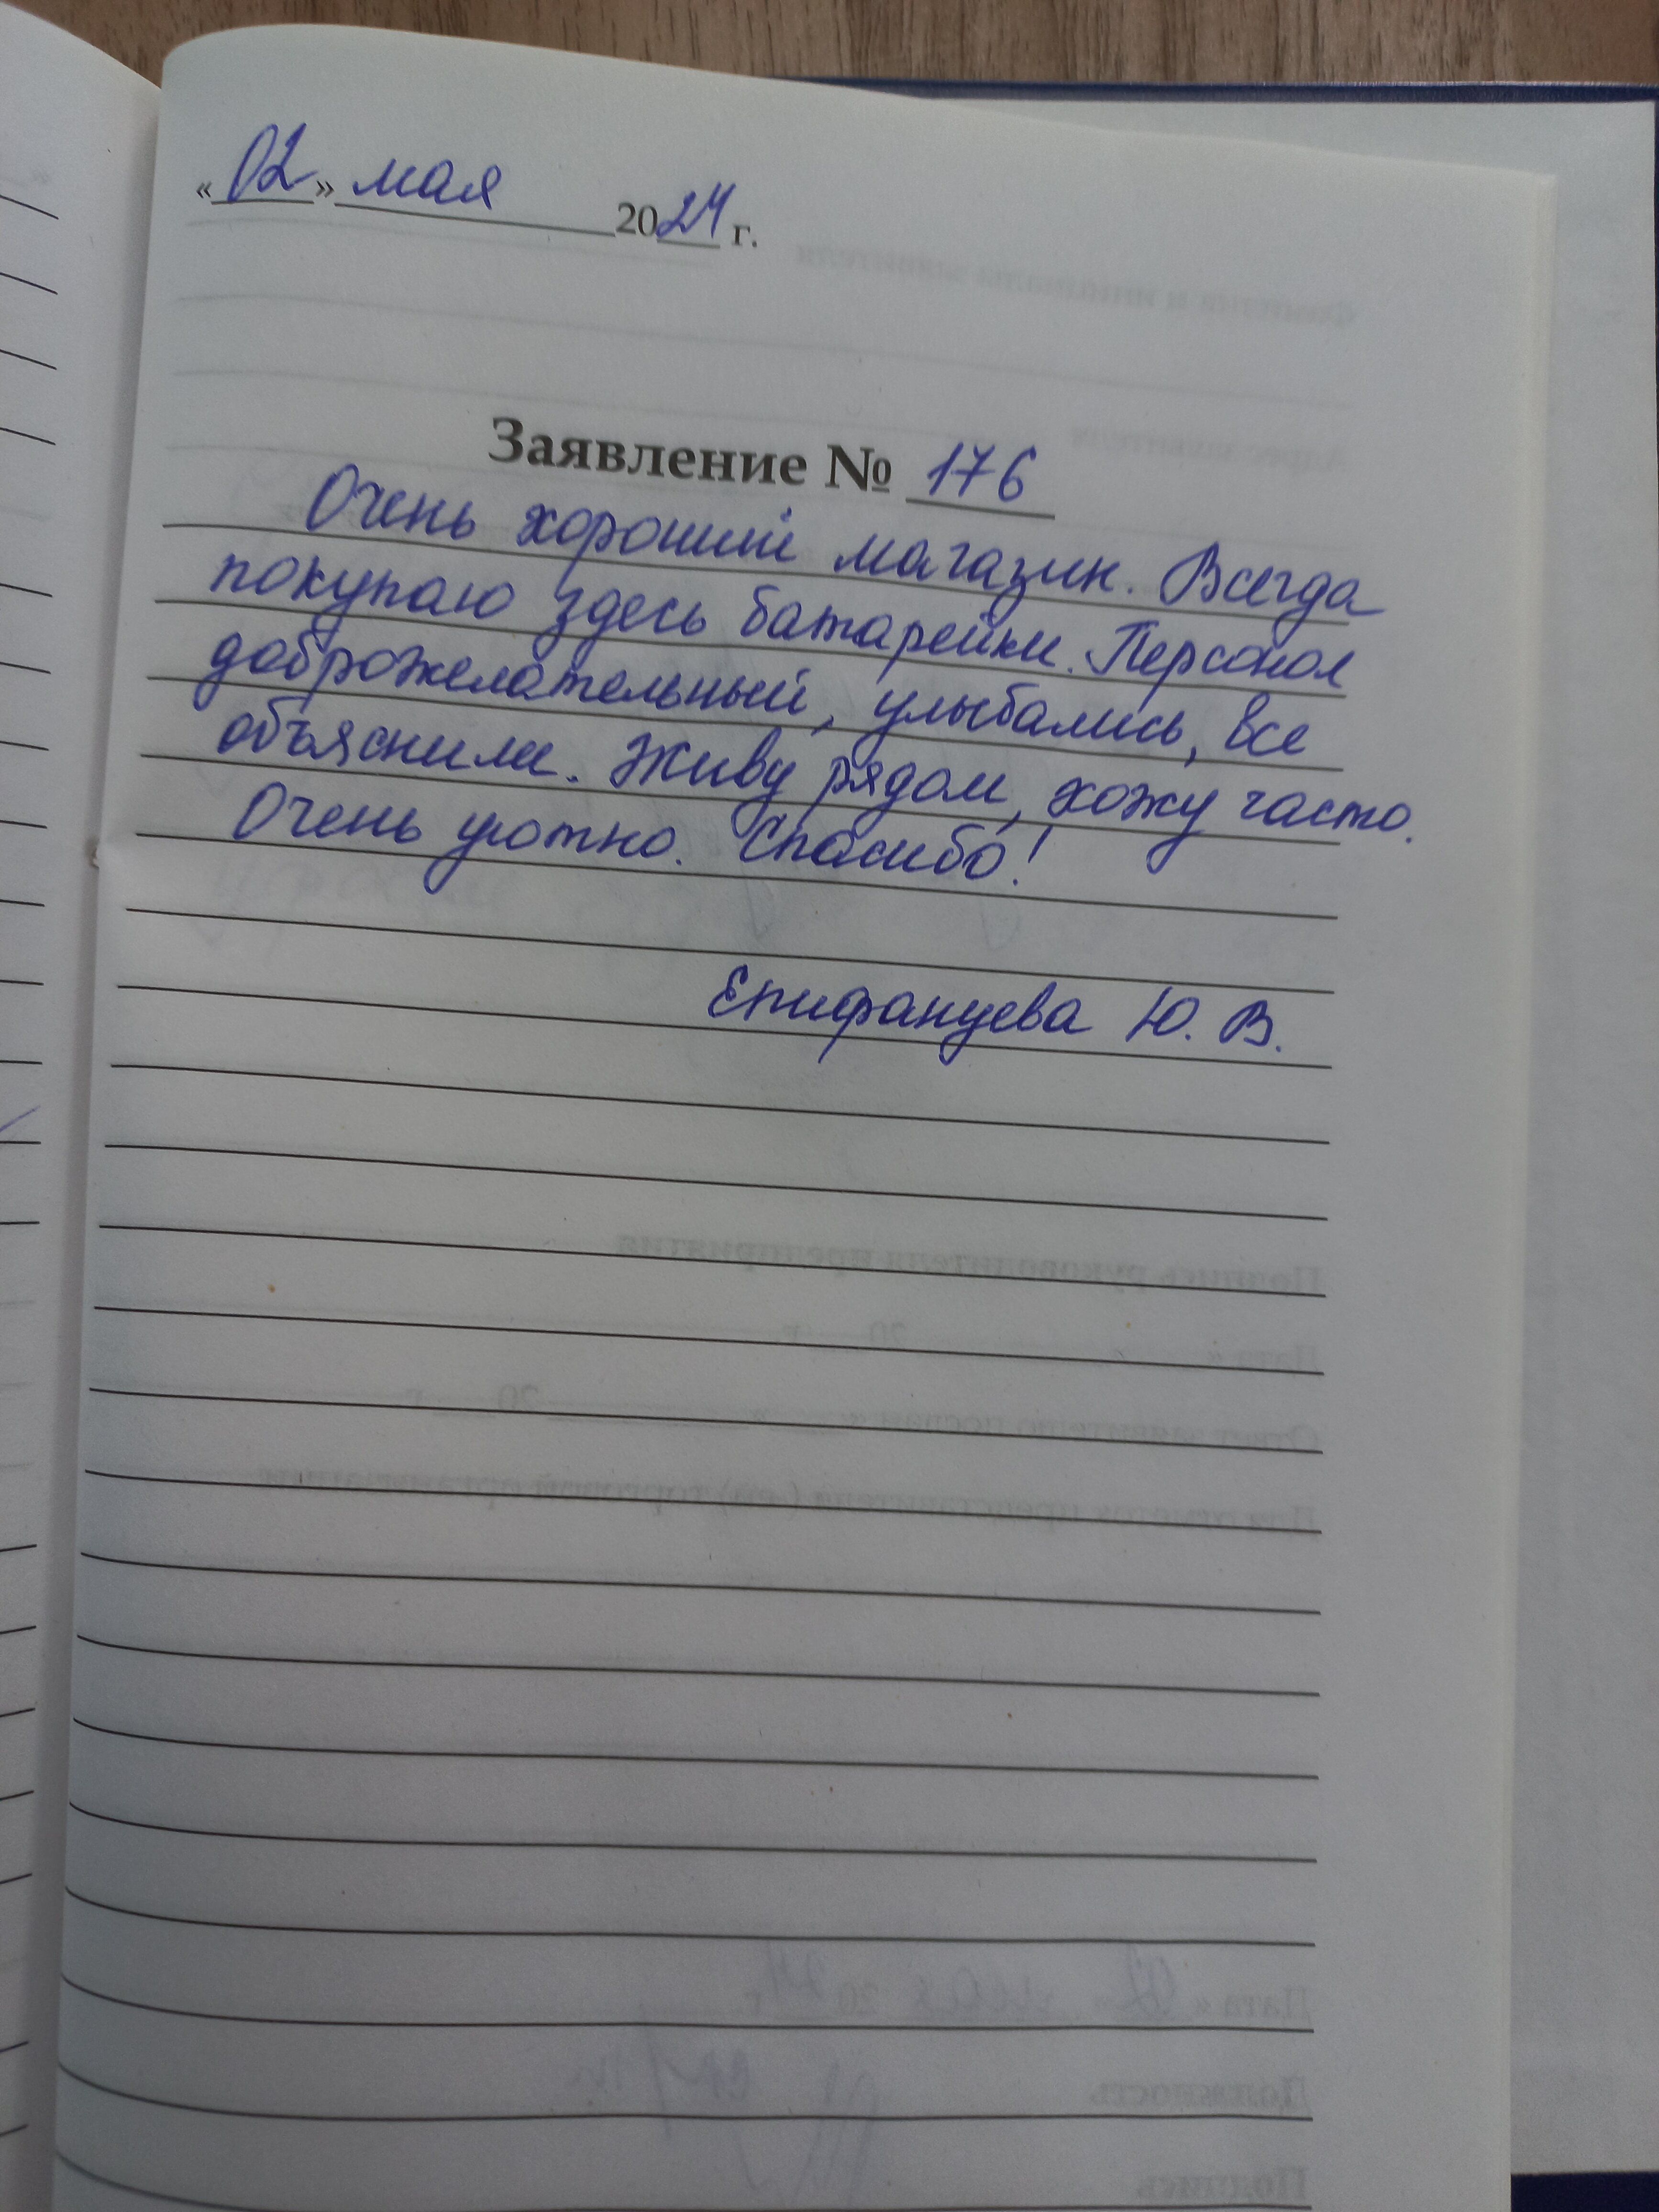 «02» мая 2024 г.
Заявление № 176
Очень хороший магазин. Всегда
покупаю здесь батарейки. Персонал
доброжелательный, улыбались, все
объяснили. Живу рядом, хожу часто.
Очень уютно. Спасибо!
Епифанцева Ю. В.